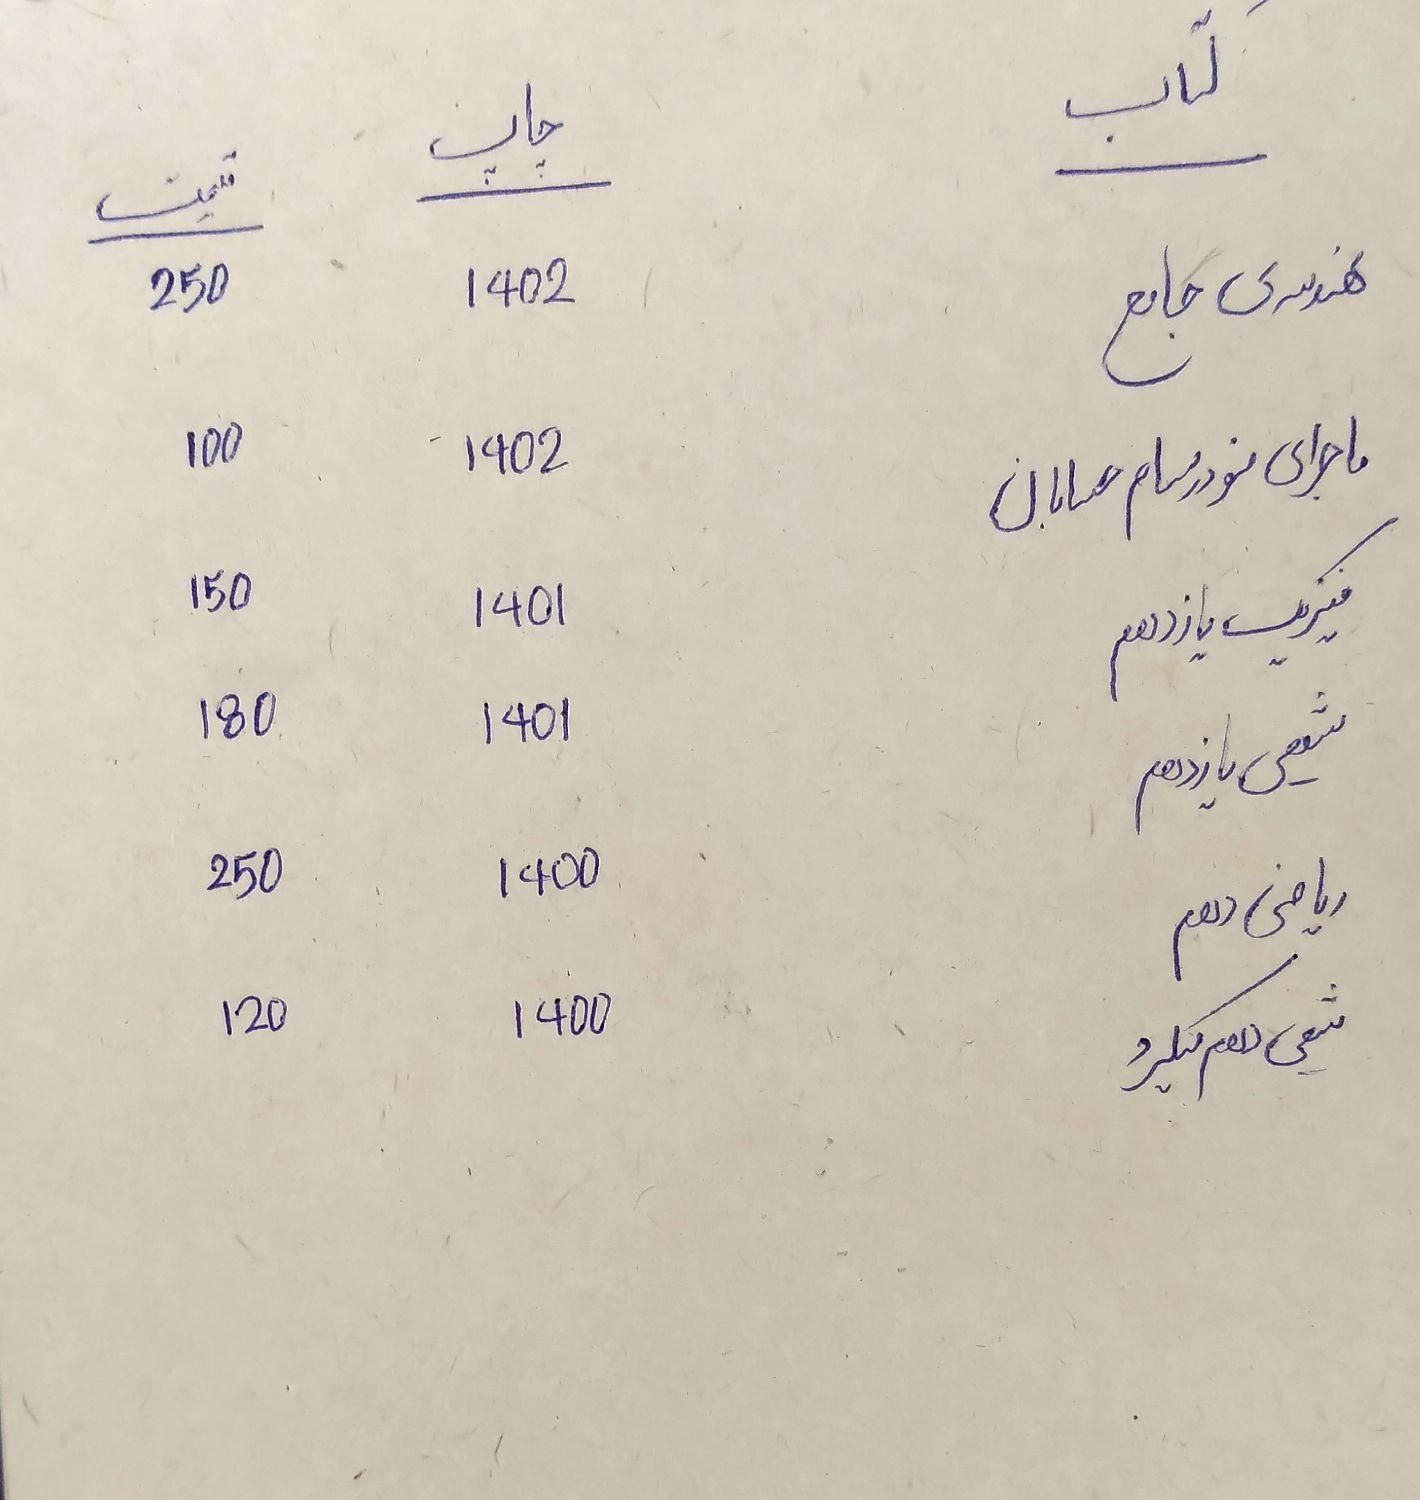 کتاب چاپ قیمت
هندسه‌ی جامع 1402 250
ماجرای من و درسام حسابان 1402 100
فیزیک یازدهم 1401 150
شیمی یازدهم 1401 180
ریاضی دهم 1400 250
شیمی دهم 1400 120